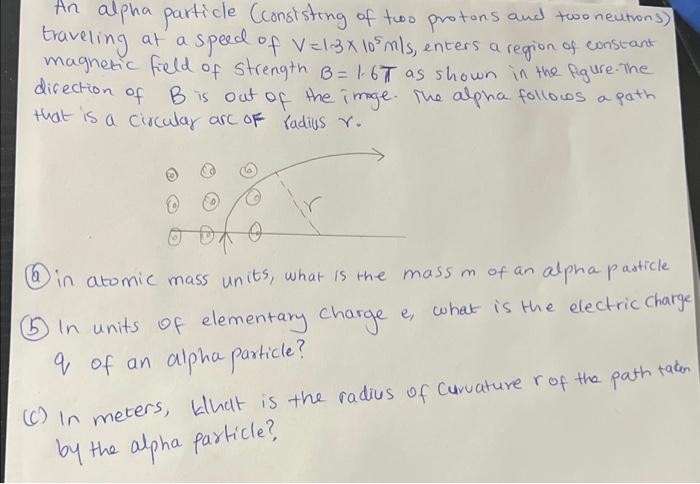 An alpha particle (consisting of two protons and two neutrons)
traveling at a speed of V=1.3 x 10⁵m/s, enters a region of constant
magnetic field of strength B = 1.6T as shown in the figure. The
direction of B is out of the image. The alpha follows a path
that is a circular arc OF radius r.
r
(a) in atomic mass units, what is the mass m of an alpha particle
(5) In units of elementary charge e, what is the electric charge
q of an alpha particle?
(c) In meters, What is the radius of curvature r of the path taken
by the alpha particle?